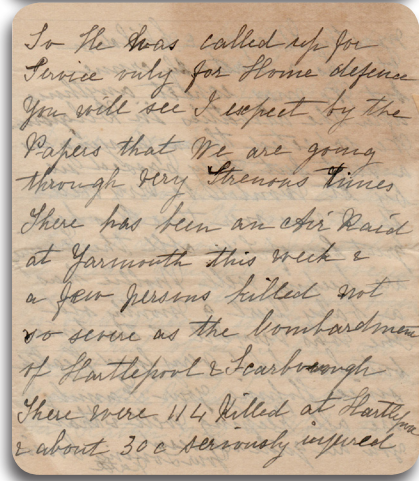 So He was called up for
Service only for Home defence
You will see I expect by the
Papers that We are going
through very Strenous times
There has been an Air Raid
at Yarmouth this week &
a few persons killed not
so severe as the bombardmen
of Hartlepool & Scarborough
There were 114 Killed at Hartlepool
& about 300 seriously injured